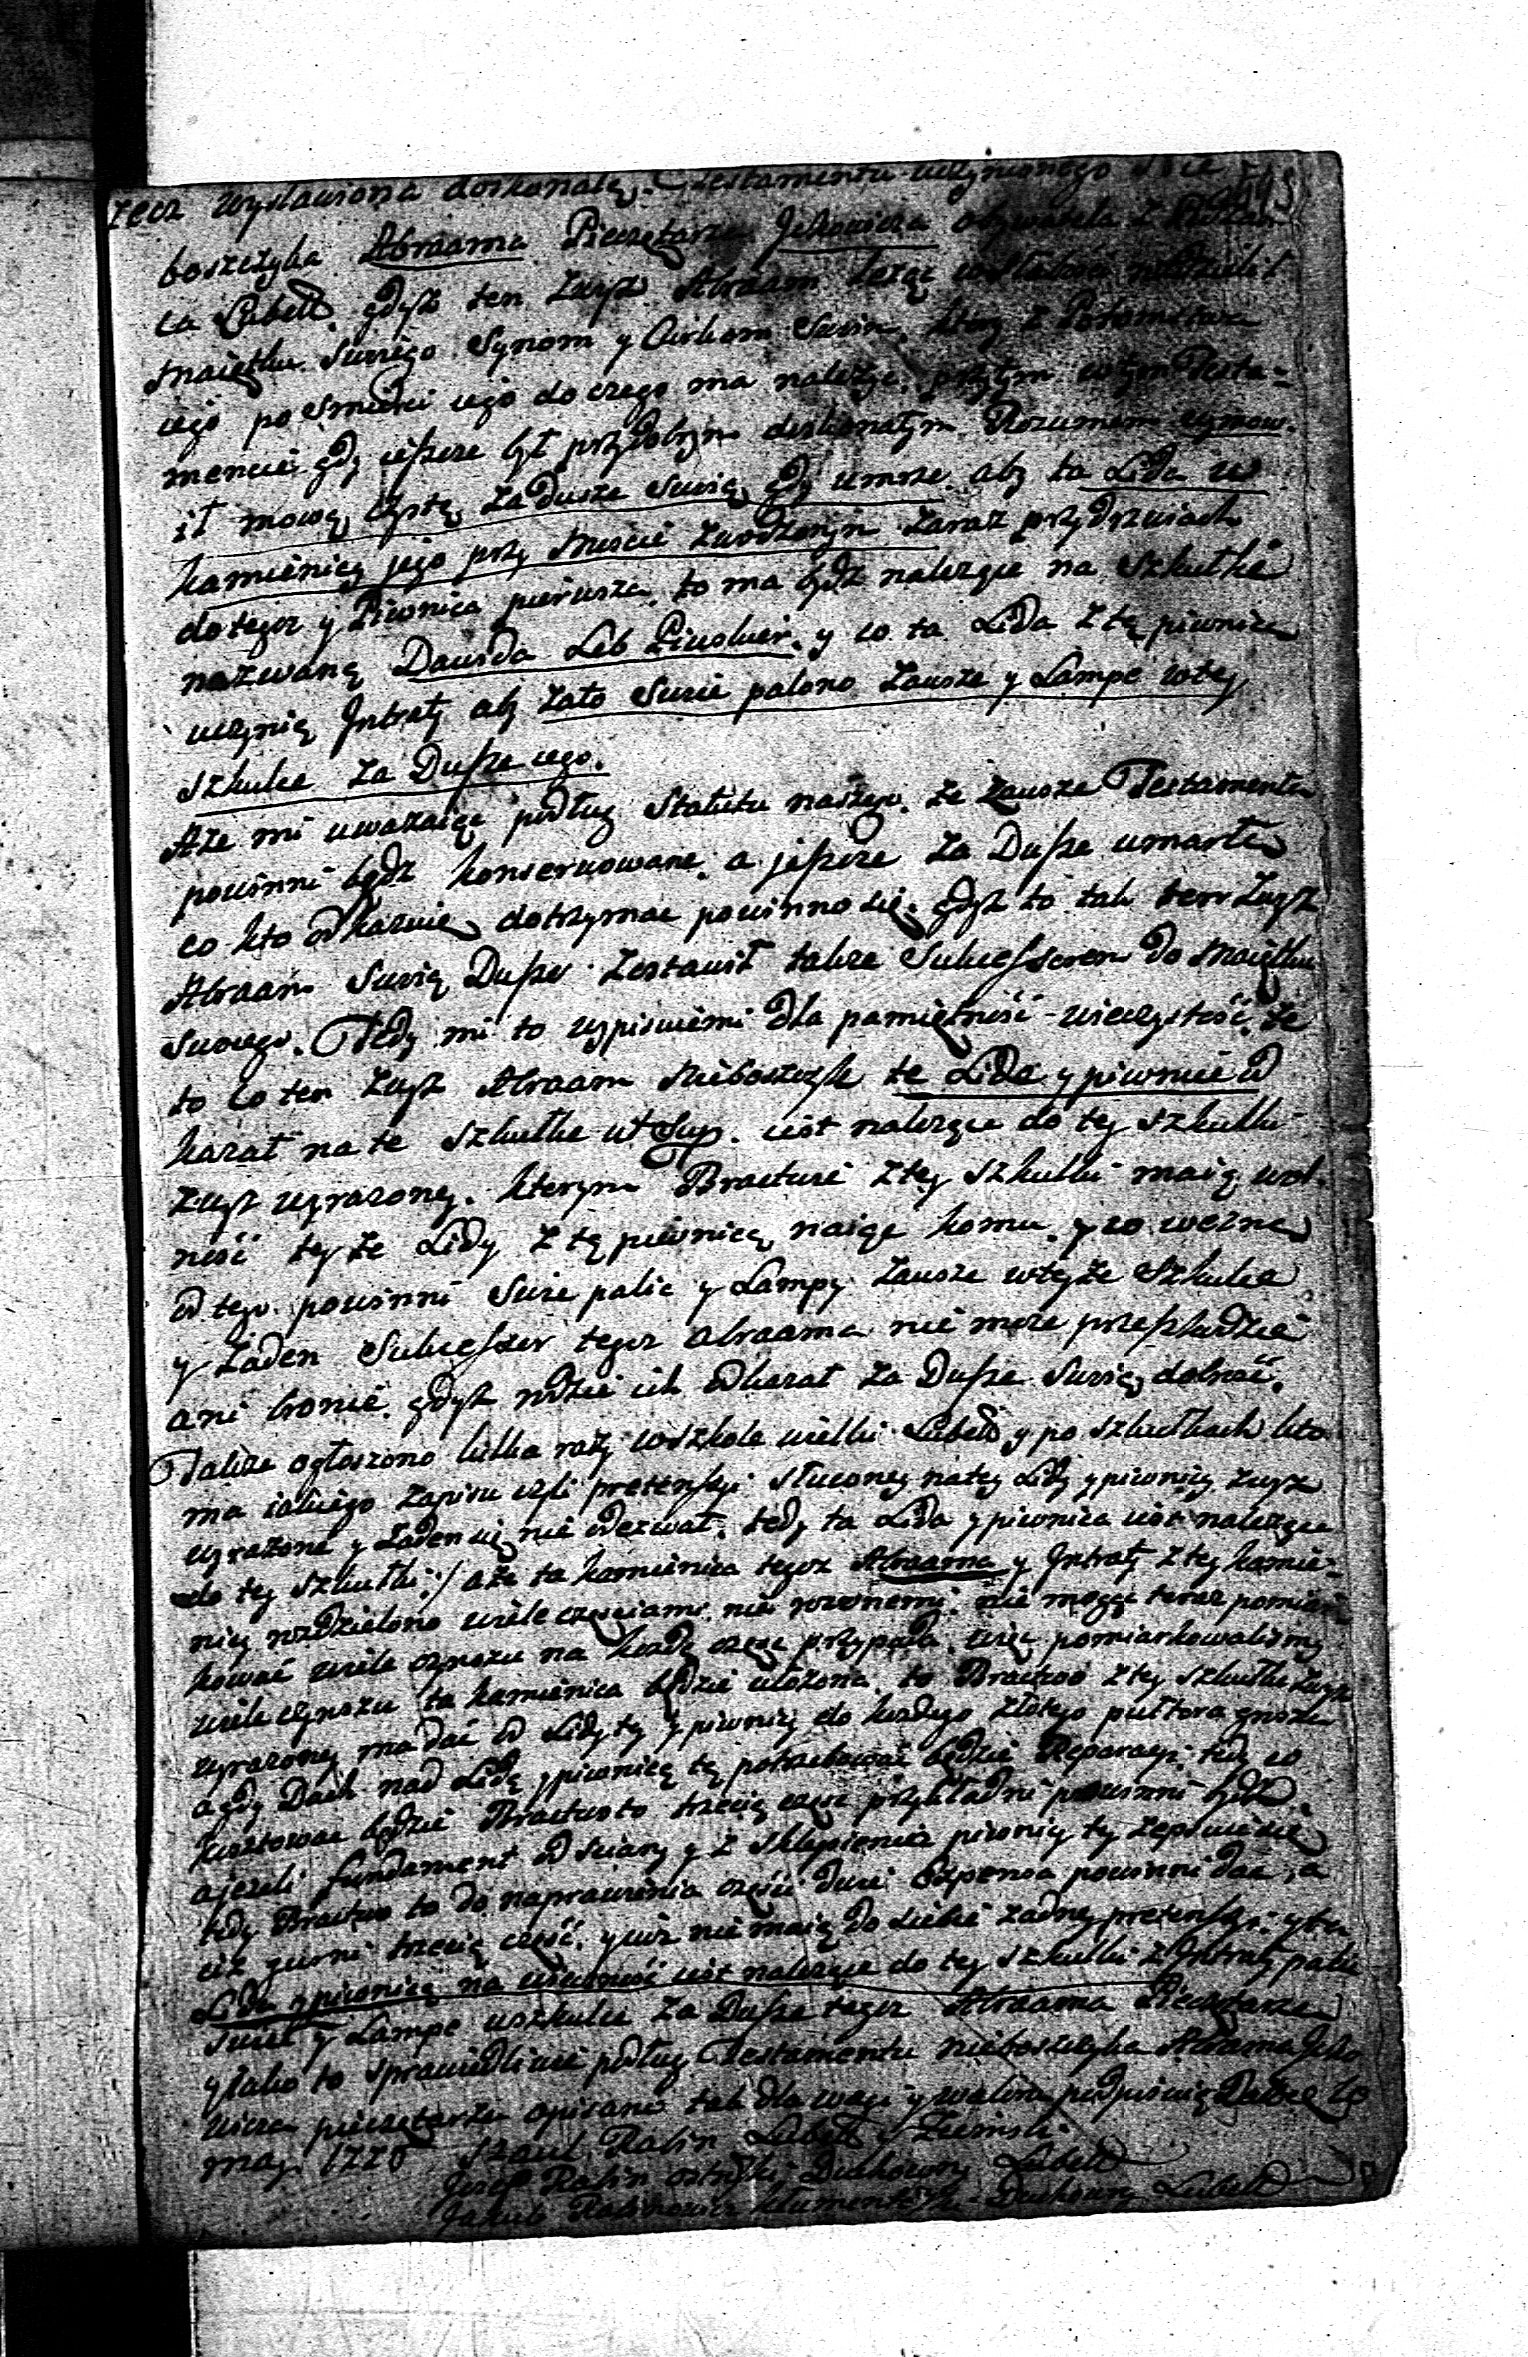 rzecz wystawiona doskonałą. Testamentu uczynionego Nie
boszczyka Abraama Pieczętarza Jelkowicza obywatela z
ca Lubell. gdyż ten Zmysz Abraam leżąc w słabości rozdzielił
Maiętku Swoiego Synom y Curkom Swoim, ktory z Potomstwa
iego po Smierci iego do czego ma nalezyc. przytym wtym Testa-
mencie gdy ieszcze był przy dobrym doskonałym Rozumem wymow-
ił mową czystą, za dusze swoią, gdy umrze aby ta Lida w
kamienicy jego przy Moscie Zwodzonym zaraz przy drzwiach
do tegoz y Piwnica pierwsza, to ma bydz nalezące na Szkułkie
nazwaną Dawida Leb Piwskier. y co ta Lida z tą piwnicą
uczynią Jntraty aby zato Swice palono Zawsze y Lampe wtey
Szkulce za Dusze iego.
Aże mi uwazaiąc podług Statutu naszego, że Zawsze Testamenta
powinni bydz konserwowane, a jeszcze za Dusze umarłe
co kto odkaznie dotrzymac powinno się, gdyż to tak ten Zmysz
Abraam Swoią Dusze Zestawił także Sukcessorem do Maiętku
Swoiego. Tedy mi to wypisuiemi dla pamiętność wieczystość, że
to co ten Zmysz Abraam Nieboszczyk te Lide y piwnice od
kazał na te Szkułke ut Sup. iest nalezące do tey Szkułki
Zmysz wyrazoney. kterym Bractwie z tey Szkułki maią wol-
ność tey że Lidy z tą piwnicą naiąc komu, y co wezną
od tego powinni Swice palic y Lampy Zawsze wteyże Szkulce
y Żaden Sukcesser tegoz Abraama nie może przeszkodzic
ani bronic. gdyż rodzic ich odkazał za Dusze Swoią, dobroć.
Takze ogłoszono kilka razy w szkole wielki Lubell y po szkułkach kto
ma iakiego Zapisu czyli pretensyi słuconey na tey Lidy y piwnicy Zmysz
wyrazone y Żaden się nie odezwał. tedy ta Lida y piwnica iest nalezące
do tey Szkułki :/ aże ta kamienica tegoz Abraama y Jntraty z tey kamie-
nicy rozdzielono wiele częsciami, nie rownemi, nie mogąc teraz pomiar
kować wiele czynszu na kozdą częsc przypada. więc pomiarkowalismy
wiele czynszu ta kamienica będzie ułożona, to Bractwo z tey szkułki Zmysz
wyrazoney ma dać od Lidy tey y piwnicy do kozdego złotego pułtora grosza
a gdy Dach nad Lidą y piwnicą tą potrzebować będzie Reparacyi tedy co
kosztować będzie Bractwo to trzecią częsc przykładni powinni bydz.
a jezeli fundament od sciany y z sklepienia piwnicy tey zepsuiesie
tedy Bractwo to do naprawienia częsci dwie Expensa powinni dac, a
ciz gurni trzecią część. y iuz nie maią do siebie zadney pretensyi: y ta
Lida y piwnicą na wieczność iest nalezące do tey szkułki z Jntraty palic
swice y Lampe w szkulce za Dusze tegoz Abraama Pieczętarza
y iako to sprawiedliwie podług Testamentu nieboszczyka Abraama Jelko
wicza pieczętarza opisane tak dla wagi y waloru podpisuię Datze 10
may. 1770 Szaul Rabin Lubell y Ziemski
Josef Rabin Duchowny Lubell
Jakub Rabinowicz Duchowny Lubell